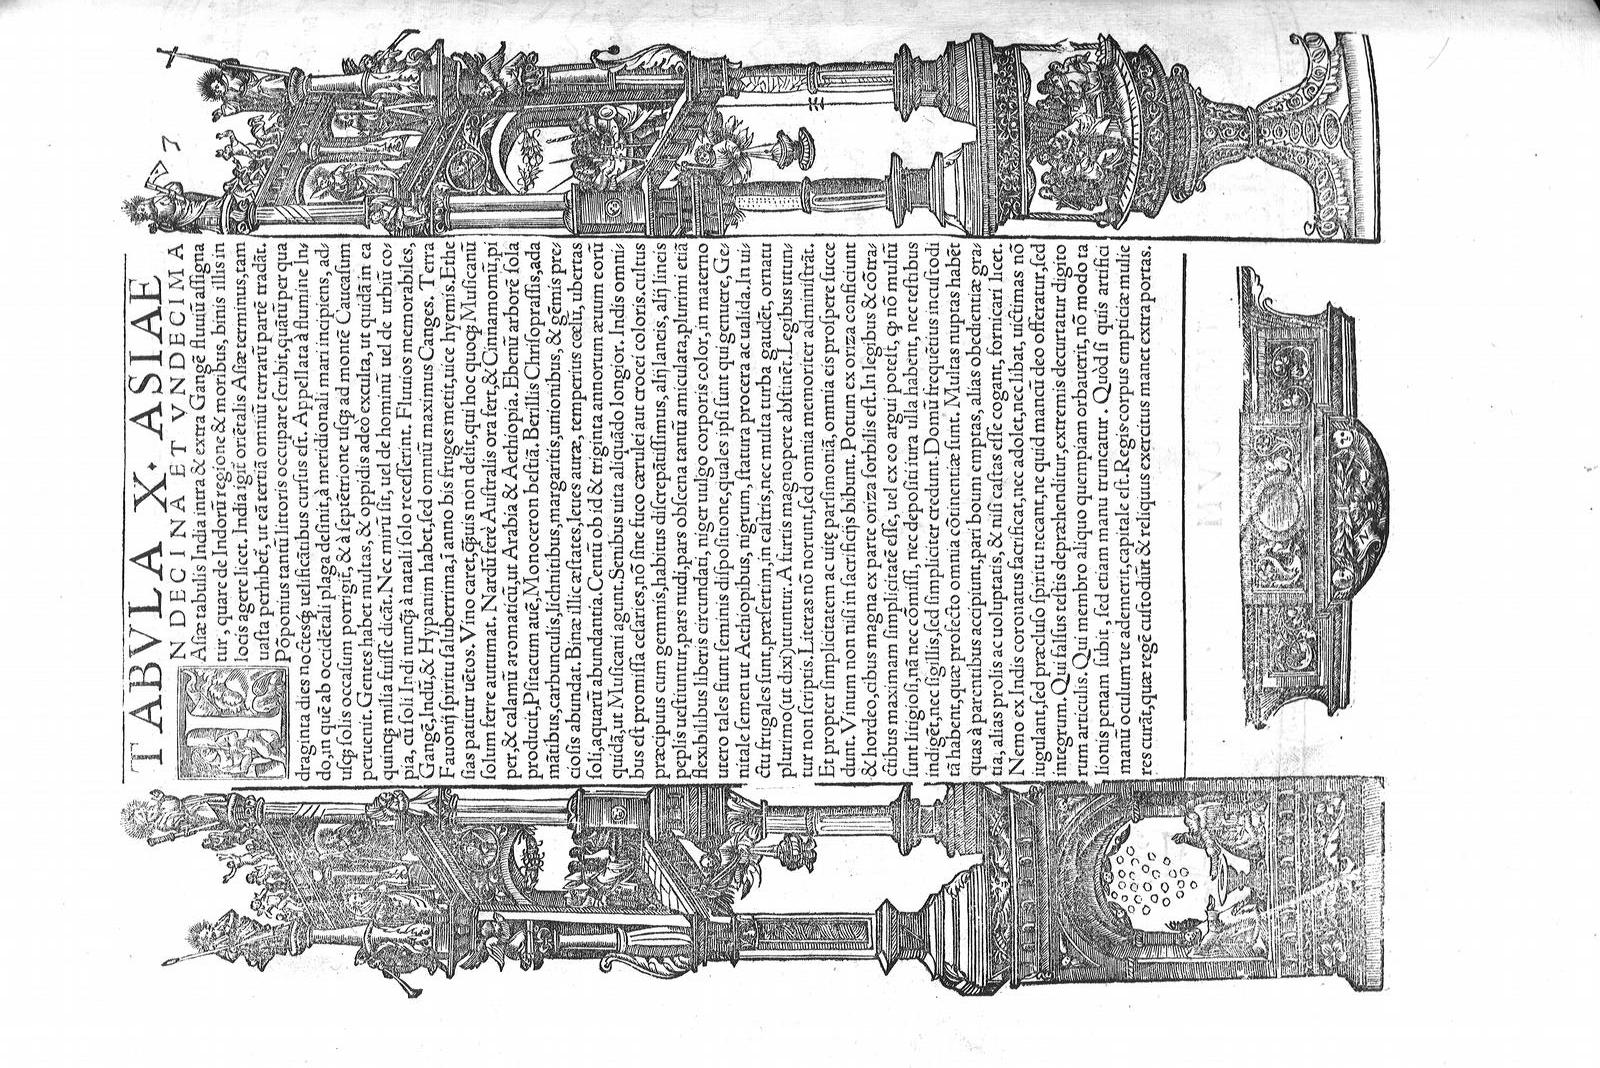 TABVLA X. ASIAE
INDECINA ET VNDECIMA
Asiæ tabulis India intra & extra Gangē fluuiū assigna
tur, quare de Indorū regione & moribus, binis illis in
locis agere licet. India igit̄ oriētalis Asiæ terminus, tam
uasta perhibet̄, ut eā tertiā omniū terrarū partē tradāt.
Pōponius tantū littoris occupare scribit, quātū per qua
draginta dies noctesq; uelificatibus cursus est. Appellata à flumine In⸗
do, in quē ab occidētali plaga desinit, à meridionali mari incipiens, ad⸗
usq; solis occasum porrigit̄, & à septētrione usq; ad montē Caucasum
peruenit. Gentes habet multas, & oppidis adeo exculta, ut quidā in ea
quinq; milia fuisse dicāt. Nec mirū sit, uel de hominū uel de urbiū co⸗
pia, cū soli Indi nunq̄ à natali solo recesserint. Fluuios memorabiles,
Gangē, Indū, & Hypanim habet, sed omniū maximus Ganges. Terra
Fauonij spiritu saluberrima, ī anno bis fruges metit, uice hyemis. Ethe
sias patitur uētos. Vino caret, q̄uis non desit, qui hoc quoq; Musicanū
solum ferre autumat. Nardū ferè Australis ora fert, & Cinnamomū, pi
per, & calamū aromaticū, ut Arabia & Aethiopia. Ebenū arborē sola
producit, Psitacum auē, Monoceron bestiā. Berillis Chrisoprassis, ada
mātibus, carbunculis, lichnitibus, margaritis, unionibus, & gēmis pre⸗
ciosis abundat. Binæ illic æstates, leues auræ, temperius cœlū, ubertas
soli, aquarū abundantia. Centū ob id & triginta annorum æuum eorū
quidā, ut Musicani agunt. Senibus uita aliquādo longior. Indis omni⸗
bus est promissa cesaries, nō sine fuco cærulei aut crocei coloris. cultus
præcipuus cum gemmis, habitus discrepātissimus, alij laneis, alij lineis
peplis uestiuntur, pars nudi, pars obscena tantū amiculata, plurimi etiā
flexibilibus liberis circundati, niger uulgo corporis color, in materno
utero tales fiunt seminis dispositione, quales ipsi sunt qui genuere, Ge⸗
nitale semen ut Aethiopibus, nigrum, statura procera ac ualida. In ui⸗
ctu frugales sunt, præsertim, in castris, nec multa turba gaudēt, ornatu
plurimo (ut dixi) utuntur. A furtis magnopere abstinēt. Legibus utun⸗
tur non scriptis. Literas nō norunt, sed omnia memoriter administrāt.
Et propter simplicitatem ac uitę parsimoniā, omnia eis prospere succe
dunt. Vinum non nisi in sacrificijs bibunt. Potum ex oriza conficiunt
& hordeo, cibus magna ex parte oriza sorbilis est. In legibus & cōtra⸗
ctibus maximam simplicitatē esse, uel ex eo argui potest, ꝙ nō multū
sunt litigiosi, nā nec cōmissi, nec depositi iura ulla habent, nec testibus
indigēt, nec sigillis, sed simpliciter credunt. Domū frequētius incustodi
tā habent, quæ profecto omnia cōtinentiæ sunt. Multas nuptas habēt
quas à parentibus accipiunt, pari boum emptas, alias obedientiæ gra⸗
tia, alias prolis ac uoluptatis, & nisi castas esse cogant, fornicari licet.
Nemo ex Indis coronatus sacrificat, nec adolet, nec libat, uictimas nō
iugulant, sed præcluso spiritu necant, ne quid mancū deo offeratur, sed
integrum. Qui falsus testis deprahenditur, extremis decurtatur digito
rum articulis. Qui membro aliquo quempiam orbauerit, nō modo ta
lionis penam subit, sed etiam manu truncatur. Quòd si quis artifici
manū oculum'ue ademerit, capitale est. Regis corpus empticiæ mulie
res curāt, quæ regē custodiūt & reliquus exercitus manet extra portas.
7